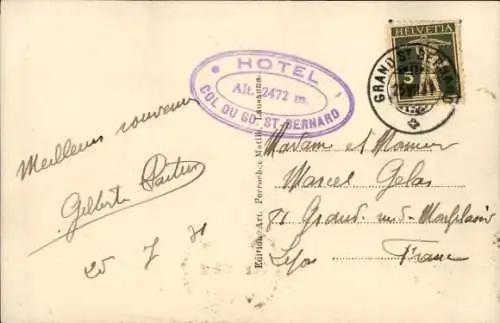 HELVETIA
5
GRAND ST. BERNARD
HOTEL
Alt. 2472 m.
COL DU GD. ST. BERNARD
Meilleurs souvenirs
Gilberte
25 7 31
Edition Art. Perrochet-Matile, Lausanne
Madame et Monsieur
Marcel Gelas
71 Grand rue de Monplaisir
Lyon France